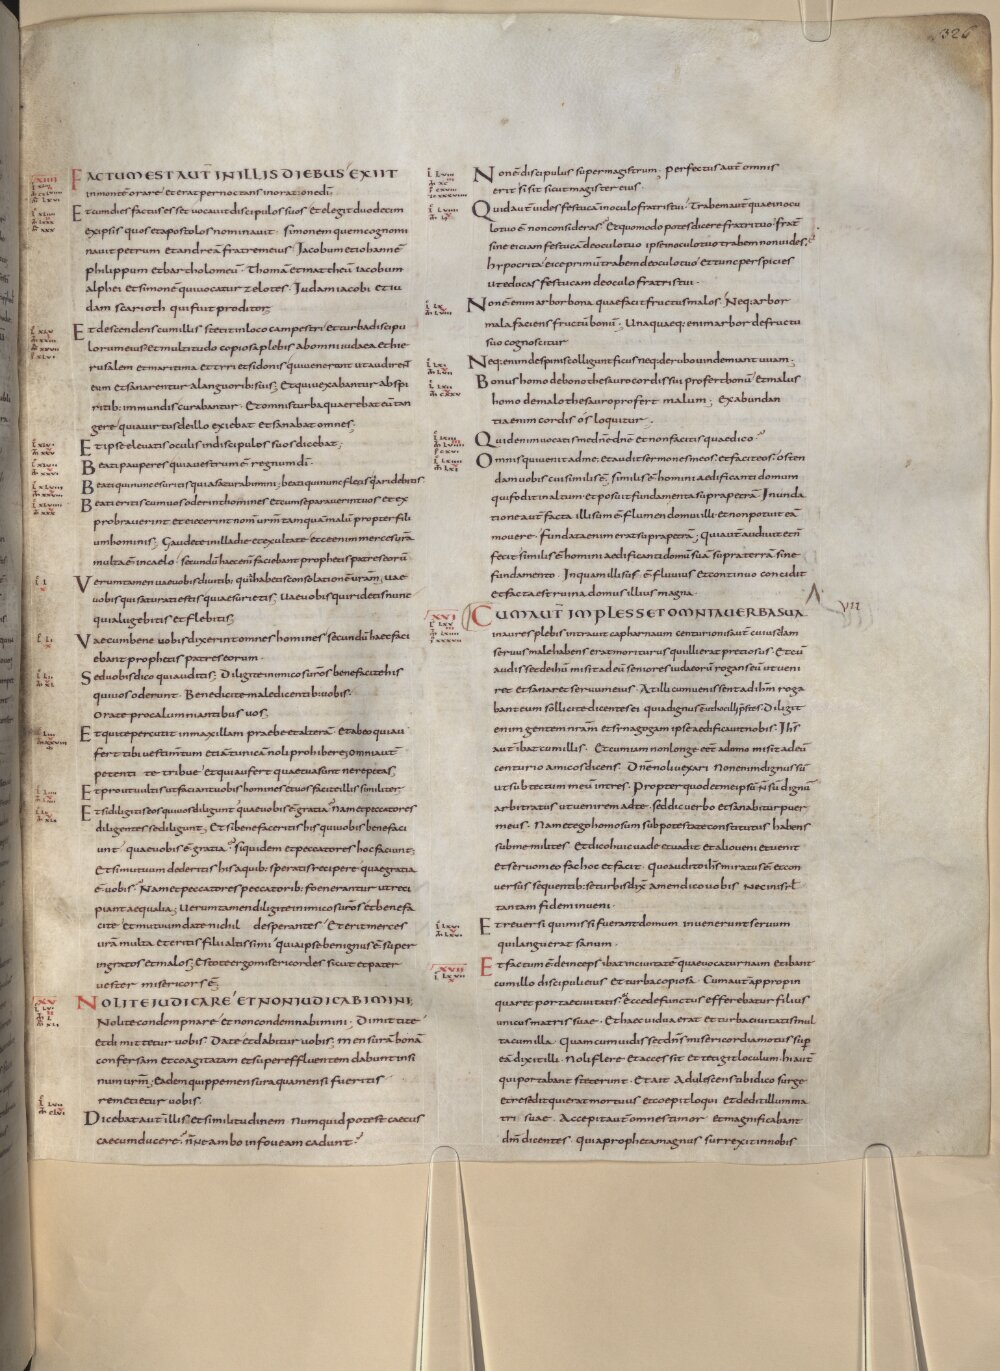 326
FACTUM EST AUT̄ IN ILLIS DIEBUS EXIIT
in monte orare et erat pernoctans in oratione dī
Et cum dies factus esset vocavit discipulos suos et elegit duodecim
ex ipsis quos et apostolos nominavit simonem quem cognomi
navit petrum et andreā fratrem eius Iacobum et iohannē
philippum et bartholomeū Thomā et matheū iacobum
alphei et simonē qui vocatur zelotes Iudam iacobi et iu
dam scarioth qui fuit proditor
Et descendens cum illis stetit in loco campestri et turba discipu
lorum eius et multitudo copiosa plebis ab omni iudaea et hie
rusalem et maritima et tyri et sidonis qui venerunt ut audirent
eum et sanarentur a languorib; suis; Et qui vexabantur ab spi
ritib; inmundis curabantur Et omnis turba quaerebat eū tan
gere quia virtus de illo exiebat et sanabat omnes;
Et ipse elevatis oculis in discipulos suos dicebat;
Beati pauperes quia vestrum ē regnum dī
Beati qui nunc esuritis quia saturabimini; beati qui nunc fletis quia ridebitis
Beati eritis cum vos oderint homines et cum separaverint vos et ex
probraverint et eiecerint nomē vrm̄ tamquā malū propter fili
um hominis; Gaudete in illa die et exultate ecce enim merces vrā
multa ē in caelo secundū haec enī faciebant prophetis patres eorū
Verumtamen vae vobis divitib; quia habetis consolationē vrām; vae
vobis qui saturati estis quia esurietis; Vae vobis qui ridetis nunc
quia lugebitis et flebitis;
Vae cum bene vobis dixerint omnes homines secundū haec faci
ebant prophetis patres eorum
Sed vobis dico qui auditis; Diligite inimicos vrōs benefacite his
qui vos oderunt Benedicite maledicentib; vobis
Orate pro calumniantibus vos;
Et qui te percutit in maxillam praebe et alterā Et ab eo qui au
fert tibi vestimentum etiā tunicā noli prohibere; omni aut̄
petenti te tribue et qui aufert quae tua sunt ne repetas;
Et prout vultis ut faciant vobis homines et vos facite illis similiter
Et si diligitis eos qui vos diligunt quae vobis ē gratia nam et peccatores
diligentes se diligunt; Et si benefeceritis his qui vobis benefaci
unt quae vobis ē gratia siquidem et peccatores hoc faciunt;
Et si mutuum dederitis his a quib; speratis recipere quae gratia
ē vobis Nam et peccatores peccatorib; foenerantur ut reci
piant aequalia; Verumtamen diligite inimicos vrōs et benefa
cite et mutuum date nichil desperantes Et erit merces
vrā multa et eritis filii altissimi quia ipse benignus ē super
ingratos et malos; Estote ergo misericordes sicut et pater
vester misericors ē
NOLITE IUDICARE ET NON IUDICABIMINI;
Nolite condempnare et non condemnabimini Dimittite
et dimittetur vobis Date et dabitur vobis; mensurā bonā
confersam et coagitatam et supereffluentem dabunt in si
num vrm̄; Eadem quippe mensura qua mensi fueritis
remetietur vobis
Dicebat aut̄ illis et similitudinem Numquid potest caecus
caecum ducere nonne ambo in foveam cadunt
Non ē discipulus super magistrum; perfectus aut̄ omnis
erit si sit sicut magister eius
Quid aut̄ vides festucā in oculo fratris tui Trabem aut̄ quae in ocu
lo tuo ē non consideras Et quomodo potes dicere fratri tuo frat̄
sine eiciam festucā de oculo tuo ipse in oculo tuo trabem non vides;
hypocrita eice primū trabem de oculo tuo et tunc perspicies
ut educas festucam de oculo fratris tui
Non ē enim arbor bona quae facit fructus malos Neq; arbor
mala faciens fructū bonū Unaquaeq; enim arbor de fructu
suo cognoscitur
Neq; enim de spinis colligunt ficus neq; de rubo vindemiant uvam
Bonus homo de bono thesauro cordis sui profert bonū Et malus
homo de malo thesauro profert malum; Ex abundan
tia enim cordis os loquitur
Quid enim vocatis me dnē dnē et non facitis quae dico
Omnis qui venit ad me et audit sermones meos et facit eos osten
dam vobis cui similis ē; similis ē homini aedificanti domum
qui fodit in altum et posuit fundamenta supra petrā Inunda
tione aut̄ facta illisum ē flumen domui illi et non potuit eā
movere fundata enim erat supra petrā; Qui aut̄ audivit et n̄
fecit similis ē homini aedificanti domū suā supra terrā sine
fundamento In qua illisus ē fluvius et continuo concidit
et facta est ruina domus illius magna
CUM AUT̄ IMPLESSET OMNIA VERBA SUA
VII
in aures plebis intravit capharnaum centurionis aut̄ cuiusdam
servus male habens erat moriturus qui illi erat pretiosus Et cū
audisset de ihū misit ad eū seniores iudaeorū rogans eū ut veni
ret et sanaret servum eius At illi cum venissent ad ihm̄ roga
bant eum sollicite dicentes ei quia dignus ē ut hoc illi prestes Diligit
enim gentem nrām et synagogam ipse aedificavit nobis Ihs̄
aut̄ ibat cum illis Et cum iam non longe eēt a domo misit ad eū
centurio amicos dicens Dnē noli vexari Non enim dignus sū
ut sub tectum meū intres Propter quod et me ipsū n̄ sū dignū
arbitratus ut venirem ad te sed dic verbo et sanabitur puer
meus Nam et ego homo sum sub potestate constitutus habens
sub me milites Et dico huic vade et vadit et alio veni et venit
Et servo meo fac hoc et facit Quo audito ihs̄ miratus ē et con
versus sequentib; se turbis dix̄ Amen dico vobis nec in isrl̄
tantam fidem inveni
Et reversi qui missi fuerant domum invenerunt servum
qui languerat sanum
Et factum ē deinceps ibat in civitatē quae vocatur naim Et ibant
cum illo discipuli eius et turba copiosa Cum aut̄ appropin
quaret portae civitatis Ecce defunctus efferebatur filius
unicus matris suae Et haec vidua erat et turba civitatis mul
ta cum illa Quam cum vidisset dns̄ misericordia motus sup
eā dixit illi Noli flere Et accessit et tetigit loculum hi aut̄
qui portabant steterunt Et ait Adulescens tibi dico surge
et resedit qui erat mortuus et coepit loqui Et dedit illum ma
tri suae Accepit aut̄ omnes timor et magnificabant
dm̄ dicentes quia propheta magnus surrexit in nobis